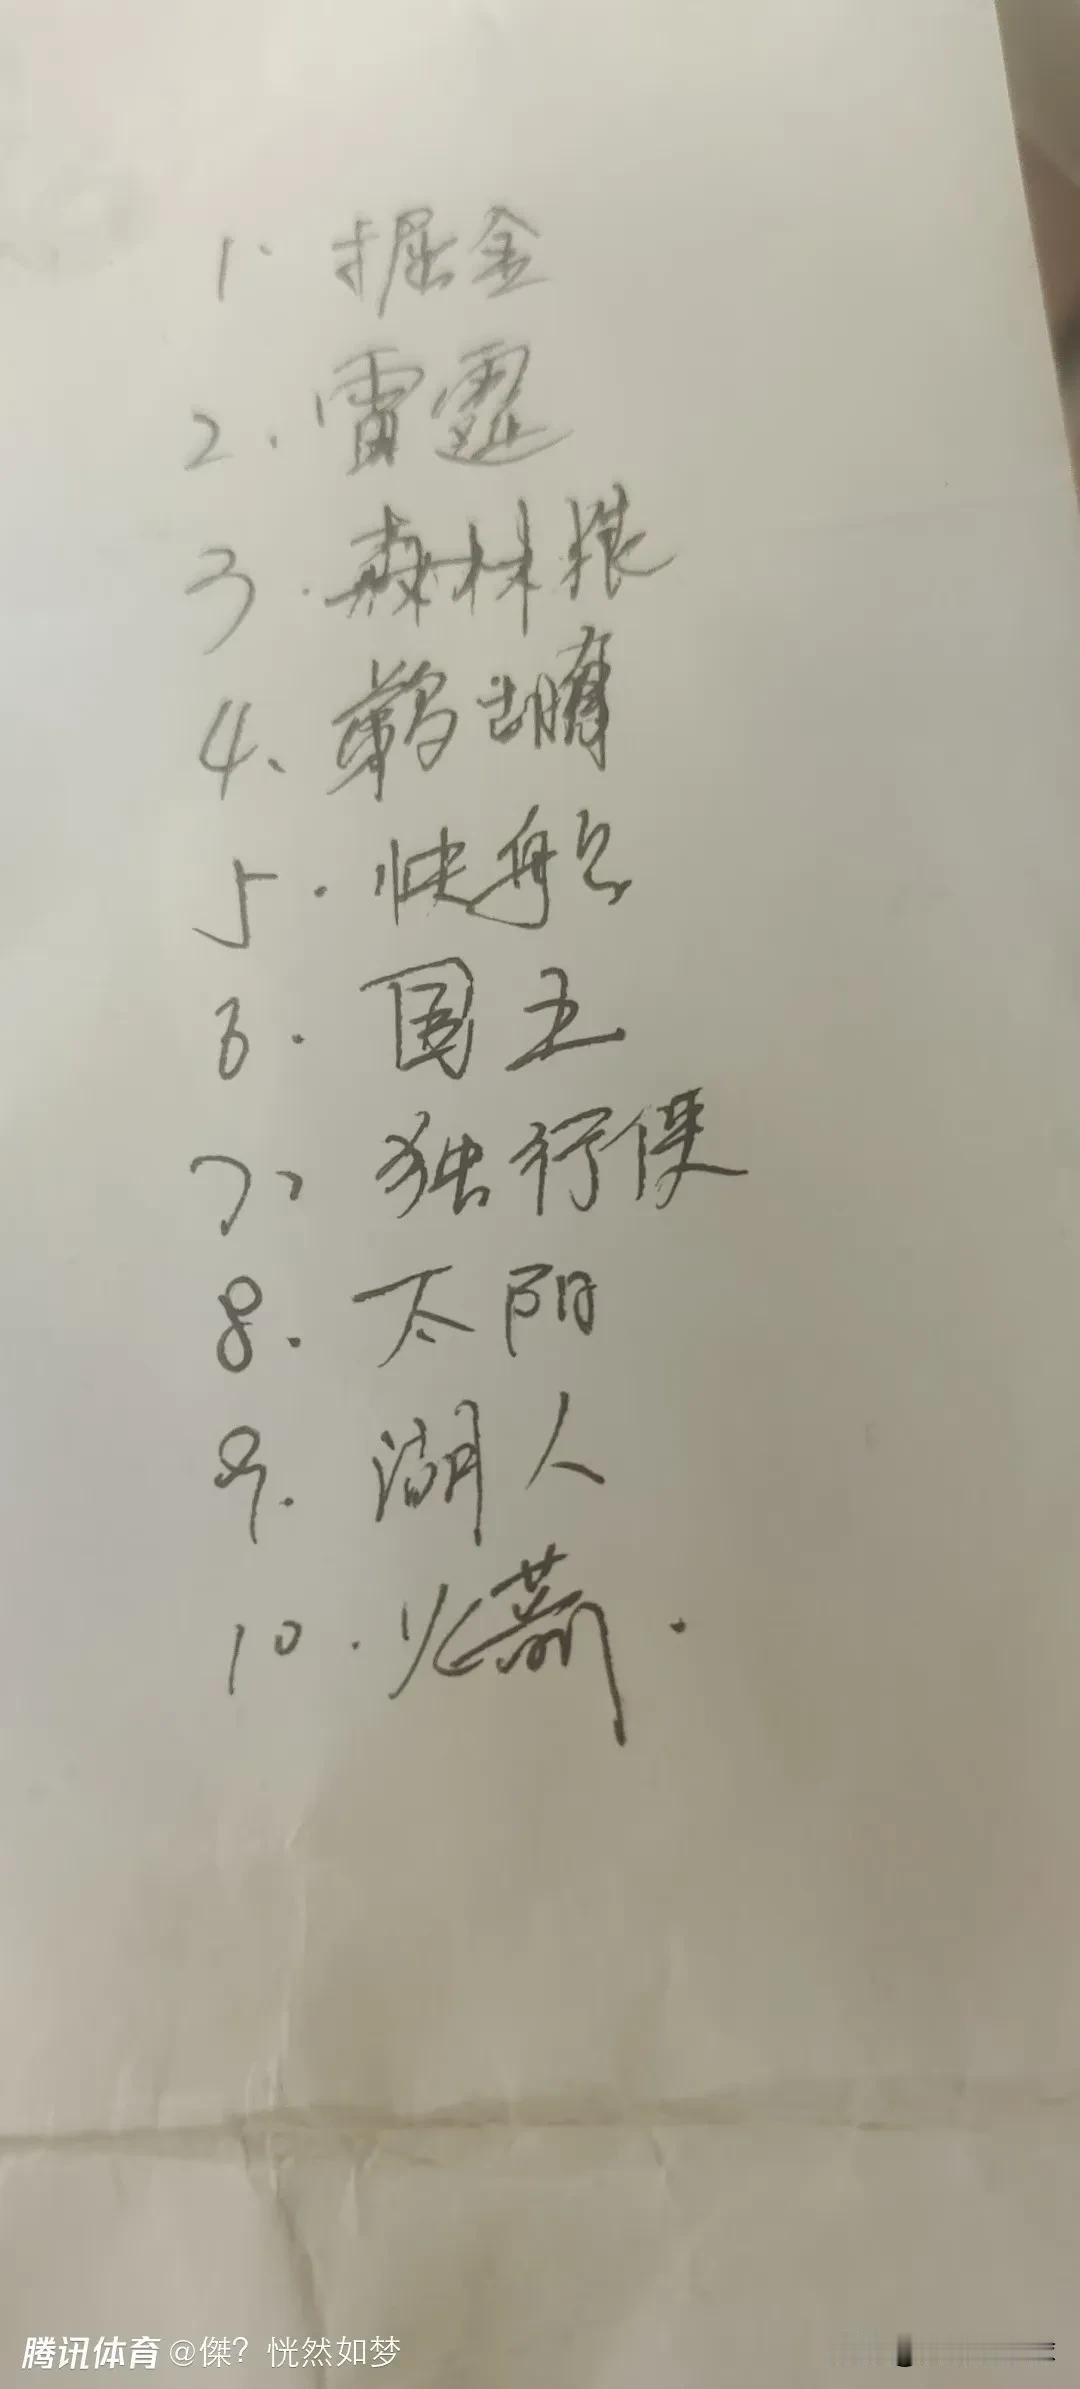 1. 掘金
2. 雷霆
3. 森林狼
4. 鹈鹕
5. 快船
6. 国王
7. 独行侠
8. 太阳
9. 湖人
10. 火箭.
腾讯体育 @傑？恍然如梦